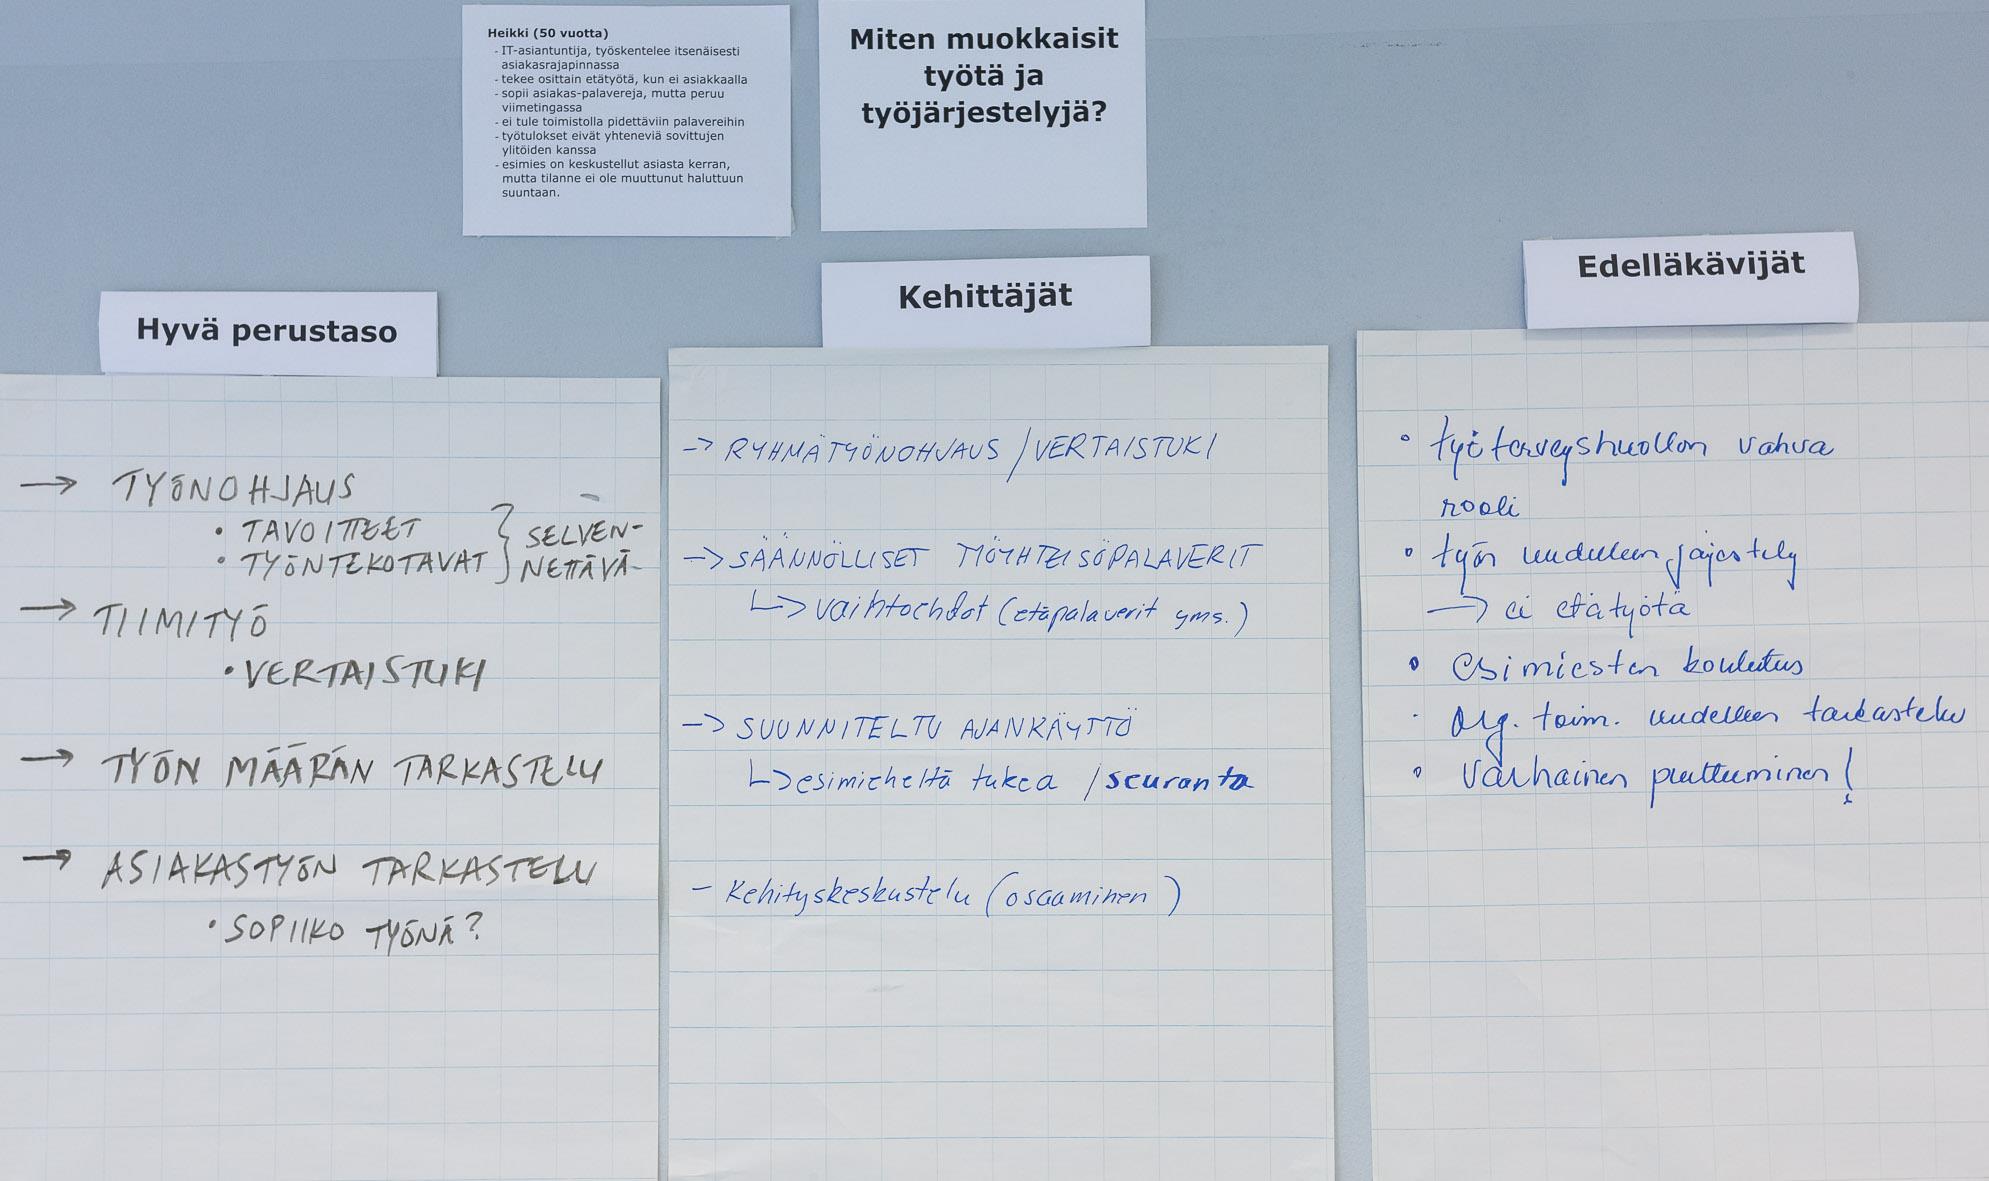 Heikki (50 vuotta)
- IT-asiantuntija, työskentelee itsenäisesti
asiakasrajapinnassa
- tekee osittain etätyötä, kun ei asiakkaalla
- sopii asiakas-palavereja, mutta peruu
viimetingassa
- ei tule toimistolla pidettäviin palavereihin
- työtulokset eivät yhteneviä sovittujen
ylitöiden kanssa
- esimies on keskustellut asiasta kerran,
mutta tilanne ei ole muuttunut haluttuun
suuntaan.
Miten muokkaisit
työtä ja
työjärjestelyjä?
Hyvä perustaso
→ TYÖNOHJAUS
• TAVOITTEET
• TYÖNTEKOTAVAT } SELVEN-
NETTÄVÄ
→ TIIMITYÖ
• VERTAISTUKI
→ TYÖN MÄÄRÄN TARKASTELU
→ ASIAKASTYÖN TARKASTELU
• SOPIIKO TYÖNÄ?
Kehittäjät
→ RYHMÄTYÖNOHJAUS / VERTAISTUKI
→ SÄÄNNÖLLISET TYÖYHTEISÖPALAVERIT
↳ vaihtoehdot (etäpalaverit yms.)
→ SUUNNITELTU AJANKÄYTTÖ
↳ esimieheltä tukea / seuranta
- Kehityskeskustelu (osaaminen)
Edelläkävijät
• työterveyshuollon vahva
rooli
• työn uudelleen järjestely
→ ei etätyötä
• esimiesten koulutus
• org. toim. uudelleen tarkastelu
• Varhainen puuttuminen!